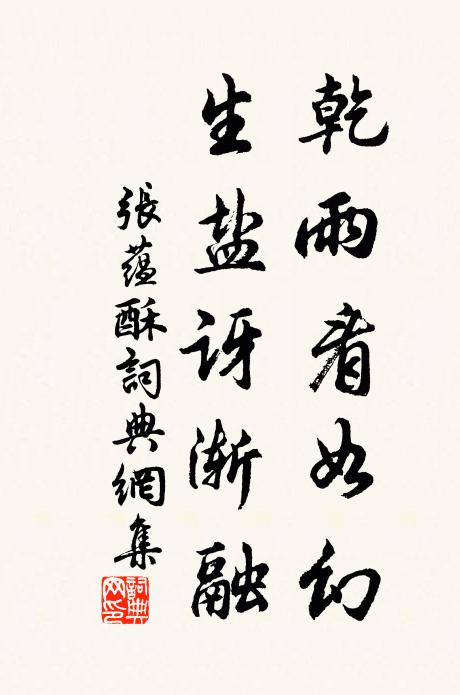 乾雨看如幻
生盐讶渐融
張蕴酥詞典網集
詞典网印